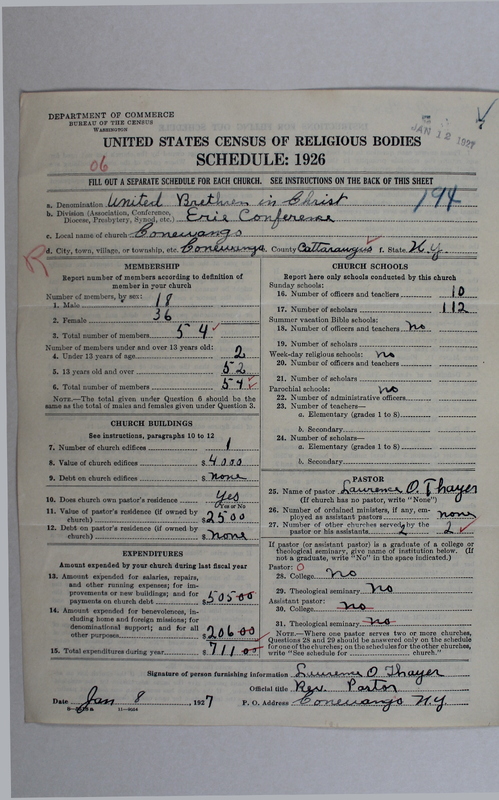 DEPARTMENT OF COMMERCE
BUREAU OF THE CENSUS
WASHINGTON
JAN 12 1927
UNITED STATES CENSUS OF RELIGIOUS BODIES
SCHEDULE: 1926
06
FILL OUT A SEPARATE SCHEDULE FOR EACH CHURCH. SEE INSTRUCTIONS ON THE BACK OF THIS SHEET
194
a. Denomination United Brethren in Christ
b. Division (Association, Conference, Diocese, Presbytery, Synod, etc.) Erie Conference
c. Local name of church Conewango
d. City, town, village, or township, etc. Conewango County Cattaraugus f. State N.Y.
R
MEMBERSHIP
Report number of members according to definition of
member in your church
Number of members, by sex:
1. Male 18
2. Female 36
3. Total number of members 54
Number of members under and over 13 years old:
4. Under 13 years of age 2
5. 13 years old and over 52
6. Total number of members 54
NOTE.—The total given under Question 6 should be the
same as the total of males and females given under Question 3.
CHURCH BUILDINGS
See instructions, paragraphs 10 to 12
7. Number of church edifices 1
8. Value of church edifices $4000
9. Debt on church edifices $none
10. Does church own pastor's residence? Yes
Yes or No
11. Value of pastor's residence (if owned by
church) $2500
12. Debt on pastor's residence (if owned by
church) $none
EXPENDITURES
Amount expended by your church during last fiscal year
13. Amount expended for salaries, repairs,
and other running expenses; for im-
provements or new buildings; and for
payments on church debt $50500
14. Amount expended for benevolences, in-
cluding home and foreign missions; for
denominational support; and for all
other purposes $20600
15. Total expenditures during year $71100
CHURCH SCHOOLS
Report here only schools conducted by this church
Sunday schools:
16. Number of officers and teachers 10
17. Number of scholars 112
Summer vacation Bible schools:
18. Number of officers and teachers no
19. Number of scholars
Week-day religious schools: no
20. Number of officers and teachers
21. Number of scholars
Parochial schools: no
22. Number of administrative officers
23. Number of teachers—
a. Elementary (grades 1 to 8)
b. Secondary
24. Number of scholars—
a. Elementary (grades 1 to 8)
b. Secondary
PASTOR
25. Name of pastor Laurence O. Thayer
(If church has no pastor, write "None")
26. Number of ordained ministers, if any, em-
ployed as assistant pastors none
27. Number of other churches served by the
pastor or his assistants 2 2
If pastor (or assistant pastor) is a graduate of a college or
theological seminary, give name of institution below. (If
not a graduate, write "No" in the space indicated.)
Pastor: O
28. College no
29. Theological seminary no
Assistant pastor:
30. College no
31. Theological seminary no
NOTE.—Where one pastor serves two or more churches,
Questions 28 and 29 should be answered only on the schedule
for one of the churches; on the schedules for the other churches,
write "See schedule for church."
Signature of person furnishing information Laurence O Thayer
Official title Rev. Pastor
Date Jan 8, 1927 P. O. Address Conewango N.Y.